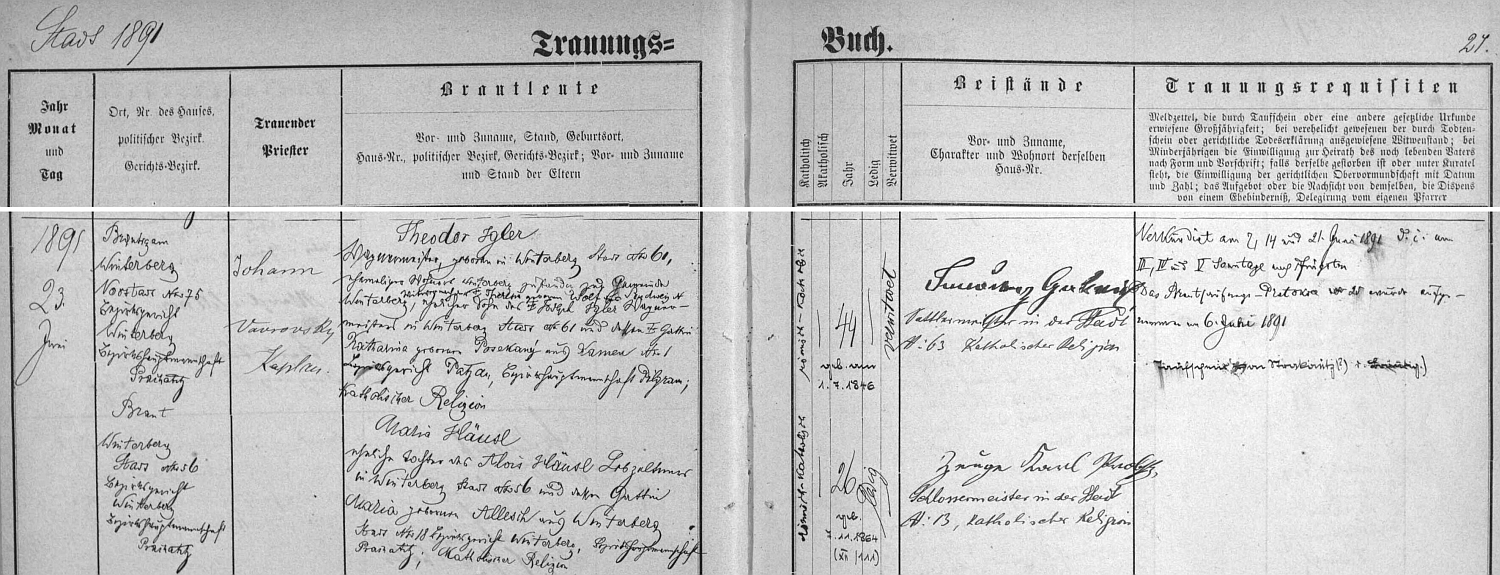 Stadt 1891
Trauungs=
Buch.
27.
Jahr
Monat
und
Tag
Ort, Nr. des Hauses,
politischer Bezirk.
Gerichts-Bezirk.
Trauender
Priester
Brautleute
Vor- und Zuname, Stand, Geburtsort,
Haus-Nr., politischer Bezirk, Gerichts-Bezirk; Vor- und Zuname
und Stand der Eltern
Katholisch
Akatholisch
Jahr
Ledig
Verwitwet
Beistände
Vor- und Zuname,
Charakter und Wohnort derselben
Haus-Nr.
Trauungsrequisiten
Meldzettel, die durch Taufschein oder eine andere gesetzliche Urkunde
erwiesene Großjährigkeit; bei verehelicht gewesenen der durch Todten-
schein oder gerichtliche Todeserklärung ausgewiesene Witwenstand; bei
Minderjährigen die Einwilligung zur Heirath des noch lebenden Vaters
nach Form und Vorschrift; falls derselbe gestorben ist oder unter Kuratel
steht, die Einwilligung der gerichtlichen Obervormundschaft mit Datum
und Zahl; das Aufgebot oder die Nachsicht von demselben, die Dispens
von einem Ehehinderniß, Delegirung vom eigenen Pfarrer
1891
23
Juni
Bräutigam
Winterberg
Vorstadt No 75
Bezirksgericht
Winterberg
Bezirkshauptmannschaft
Prachatitz
Johann
Vavrovský
Kaplan.
Theodor Igler
Wagnermeister, geboren in Winterberg Stadt No 61,
ehemaliger Winterberg Gemeinde
Winterberg, ehelicher Sohn des Igler Wagner-
meisters in Winterberg Stadt No 61 und dessen Gattin
Katharina geborenen Posekaný aus Lomen No 1
Bezirksgericht Patzau, Bezirkshauptmannschaft Pilgram;
Katholischer Religion
römisch-katholisch
44
geb. am
1.7.1846
verwitwet
Sattlermeister in der Stadt
No: 63 katholischer Religion
Verkündigt am 7, 14 und 21. Juni 1891 d. i. am
III, IV und V Sonntage nach Pfingsten
Das Brautprüfungs-Protokoll wurde aufge-
nommen am 6. Juni 1891
Braut
Winterberg
Stadt No 56
Bezirksgericht
Winterberg
Bezirkshauptmannschaft
Prachatitz
Maria Häusl
eheliche Tochter des Alois Häusl Lebzelters
in Winterberg Stadt No 56 und dessen Gattin
Maria geborenen Allesch aus Winterberg
Stadt No 18 Bezirksgericht Winterberg, Bezirkshauptmannschaft
Prachatitz, Katholischer Religion
römisch-katholisch
26
geb.
11.1864
(XII/111)
ledig
Zeuge Karl
Schlossermeister in der Stadt
No: 13, katholischer Religion